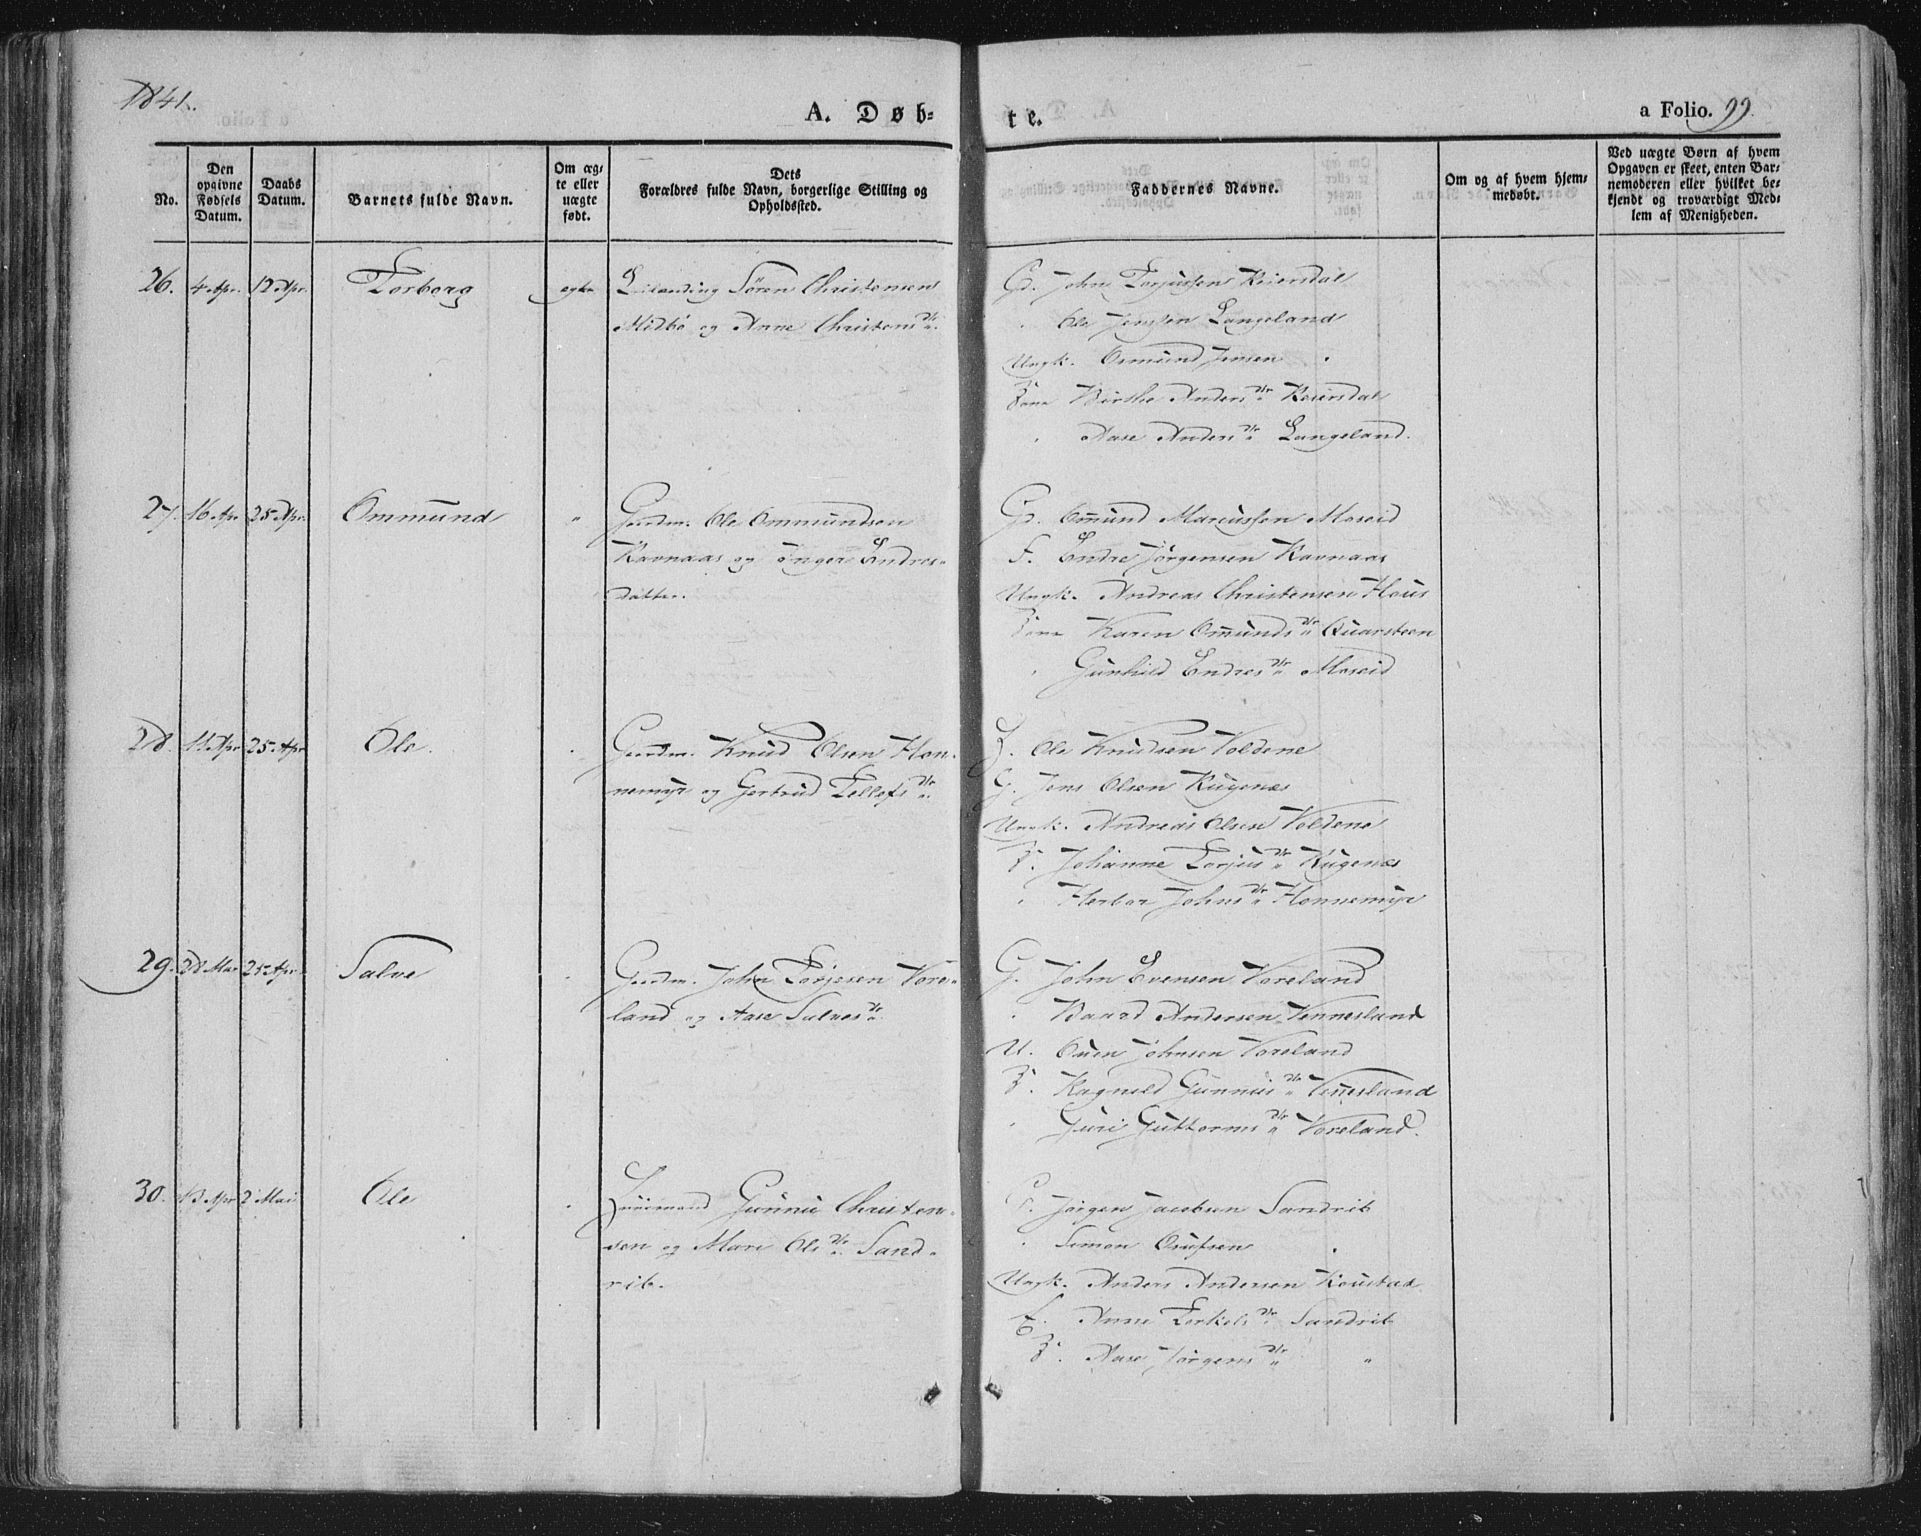 1841.
A. Døb-
te.
a Folio. 99.
No.
Den
opgivne
Fødsels
Datum.
Daabs
Datum.
Barnets fulde Navn.
Om æg-
te eller
uægte
født.
Dets
Forældres fulde Navn, borgerlige Stilling og
Opholdssted.
Faddernes Navne.
Om og af hvem hjem-
medøbt.
Ved uægte Børn af hvem
Opgaven er skeet, enten Bar-
nemoderen eller hvilket be-
kjendt og troværdigt Med-
lem af Menigheden.
26. 4 Apr. 12 Apr. Torborg ægte Leilænding Søren Christensen
Midbö og Anne Christens dtr.
Gd. John Torjussen Reiersdal
" Ole Jenssen Langeland
Ungk. Omund Jensen "
Kone Birthe Anders dtr Reiersdal
" Aase Anders dtr Langeland.
27. 16 Apr 25 Apr. Ommund " Gaardm. Ole Ommundsen
Ravnaas og Inger Endres-
datter.
Gd. Omund Marcussen Moseid
F. Endre Jörgensen Ravnaas
Ungk. Andreas Christensen Haus
Kone Karen Omunds dtr Quarsteen
" Gunhild Endres dtr Moseid
28. 11 Apr 25 Apr Ole. " Gaardm. Knud Olsen Hon-
nemyr og Gertrud Tellefs dtr.
F. Ole Knudsen Voldene
G. Jens Olsen Rugenæs
Ungk. Andreas Olsen Voldene
K. Johanne Torjus dtr Rugenæs
" Herbor Johns dtr Honnemyr
29. 28 Mar 25 Apr. Salve " Gaardm. John Torjesen Vore-
land og Aase Salves dtr
G. John Evensen Voreland
" Baard Andersen Vennesland
U. Even Johnsen Voreland
K. Ragnild Gunnus dtr Vennesland
" Guri Guttorms dtr Voreland.
30. 13 Apr 2 Mai Ole " Huusmand Gunnu Christen-
sen og Mari Ols dtr Sand-
rib.
G. Jörgen Jacobsen Sandrib
" Simon Osufsen "
Ungk. Anders Andersen Roustad
E. Anne Terkels dtr Sandrib
K. Aase Jörgens dtr "